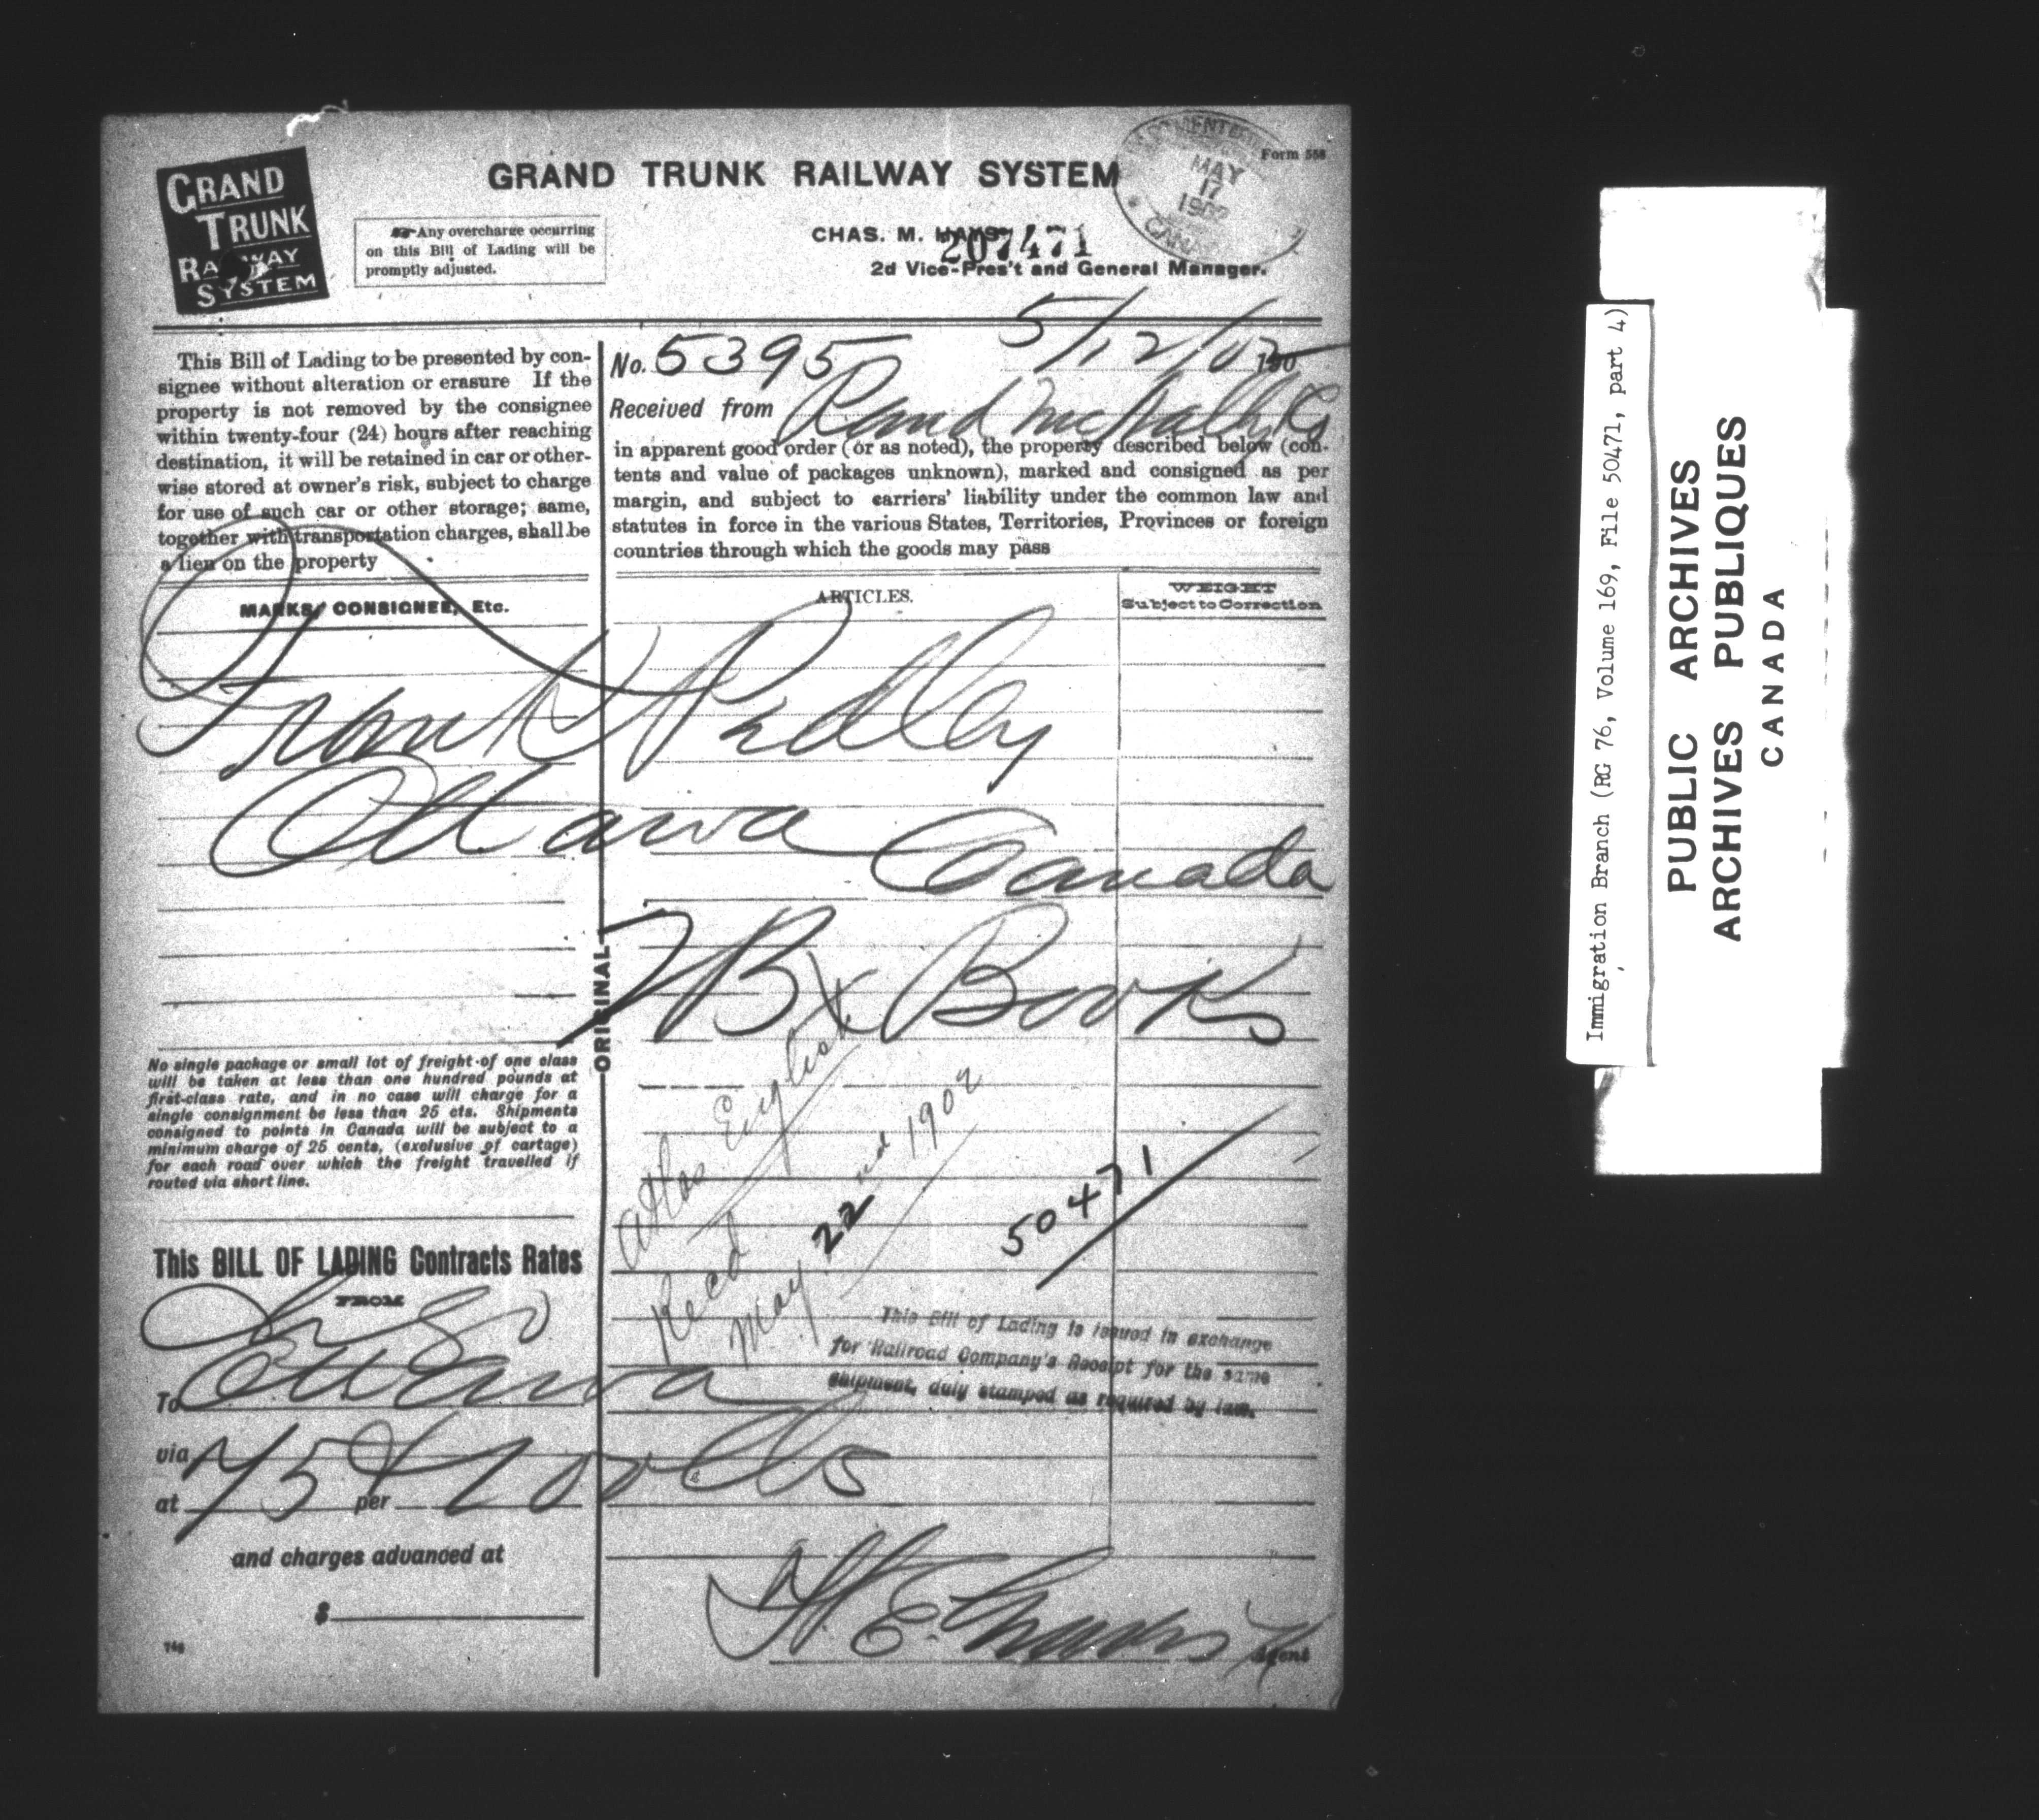 GRAND TRUNK RAILWAY SYSTEM
GRAND TRUNK RAILWAY SYSTEM
Form 558
MAY 17 1902
CANADA
Any overcharge occurring
on this Bill of Lading will be
promptly adjusted.
CHAS. M. HAYS
207471
2d Vice-Pres't and General Manager.
This Bill of Lading to be presented by con-
signee without alteration or erasure If the
property is not removed by the consignee
within twenty-four (24) hours after reaching
destination, it will be retained in car or other-
wise stored at owner's risk, subject to charge
for use of such car or other storage; same,
together with transportation charges, shall be
a lien on the property
5/12/02 190
No. 5395
Received from Rand McNally Co
in apparent good order (or as noted), the property described below (con-
tents and value of packages unknown), marked and consigned as per
margin, and subject to carriers' liability under the common law and
statutes in force in the various States, Territories, Provinces or foreign
countries through which the goods may pass
MARKS, CONSIGNEE, Etc.
ARTICLES.
WEIGHT
Subject to Correction
Frank Pedley
Ottawa Canada
7 Bx Books
ORIGINAL
No single package or small lot of freight of one class
will be taken at less than one hundred pounds at
first-class rate, and in no case will charge for a
single consignment be less than 25 cts. Shipments
consigned to points in Canada will be subject to a
minimum charge of 25 cents, (exclusive of cartage)
for each road over which the freight travelled if
routed via short line.
Atlas English
Recd
May 22nd 1902
50471
This BILL OF LADING Contracts Rates
FROM
Chgo
To Ottawa
via
at 75¢ per 100 lbs
and charges advanced at
$
746
This Bill of Lading is issued in exchange
for Railroad Company's Receipt for the same
shipment, duly stamped as required by law.
Agent
Immigration Branch (RG 76, Volume 169, File 50471, part 4)
PUBLIC ARCHIVES
ARCHIVES PUBLIQUES
CANADA